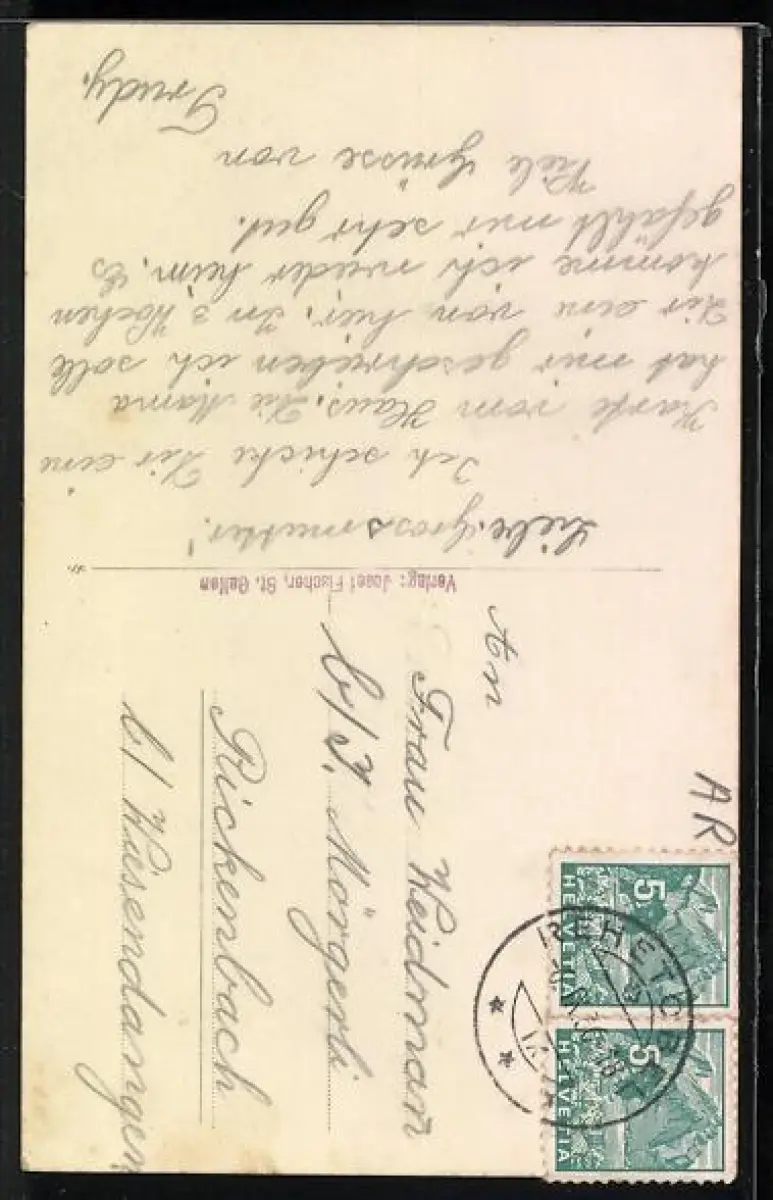 Liebe Grossmutter!
Ich schicke Dir eine
Karte vom Haus. Die Mama
hat mir geschrieben ich solle
Dir eine von hier. In 3 Wochen
komme ich wieder heim. Es
gefällt mir sehr gut.
Viele Grüsse von
Trudy.
Verlag: Josef Fischer, St. Gallen
An
Frau Weidman̄
b/J. Mörgeli
Rickenbach
b/ Wiesendangen
AR
5
HELVETIA
5
HELVETIA
REHETOBEL